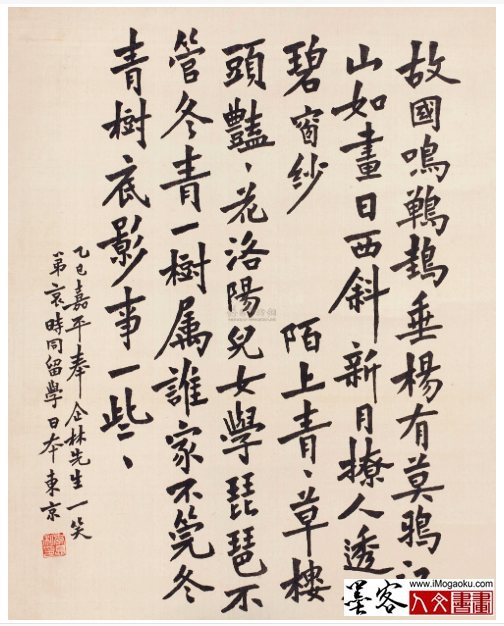 故國鳴鵯鵊垂楊有莫鴉江
山如畫日西斜 新月撩人透
碧窗紗 陌上青、草樓
頭豔、花洛陽兒女學琵琶不
管冬青一樹屬誰家不筦冬
青樹底影事一些、
乙巳嘉平奉 企林先生一笑
弟哀時同留學日本東京
墨客
www.iMogaoku.com
人文書畫